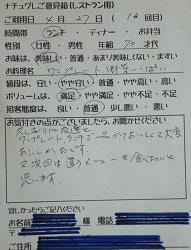 ナチュグルご意見箱(レストラン用)
ご利用日 4月27日 (12回目)
時間帯 ランチ・ティナー・お弁当
性別 女性・男性 年齢 70才代
お味は、美味しい・普通・あまり美味しくない・まずい
お料理名 ワンプレート
値段は、安い・やや安い・普通・やや高い・高い
ボリュームは、満足・やや満足・普通・やや不足・不足
接客態度は、良い・普通・少し悪い・悪い
お気付きの点がございましたら、お聞かせください
久しぶりに友達と
ワンプレートランチ 一品づつおいしくて大変
おいしかったです。
又次回は違うメニューを食べたいと
思います
宜しかったらご記入ください
お名前 様 電話
ご住所